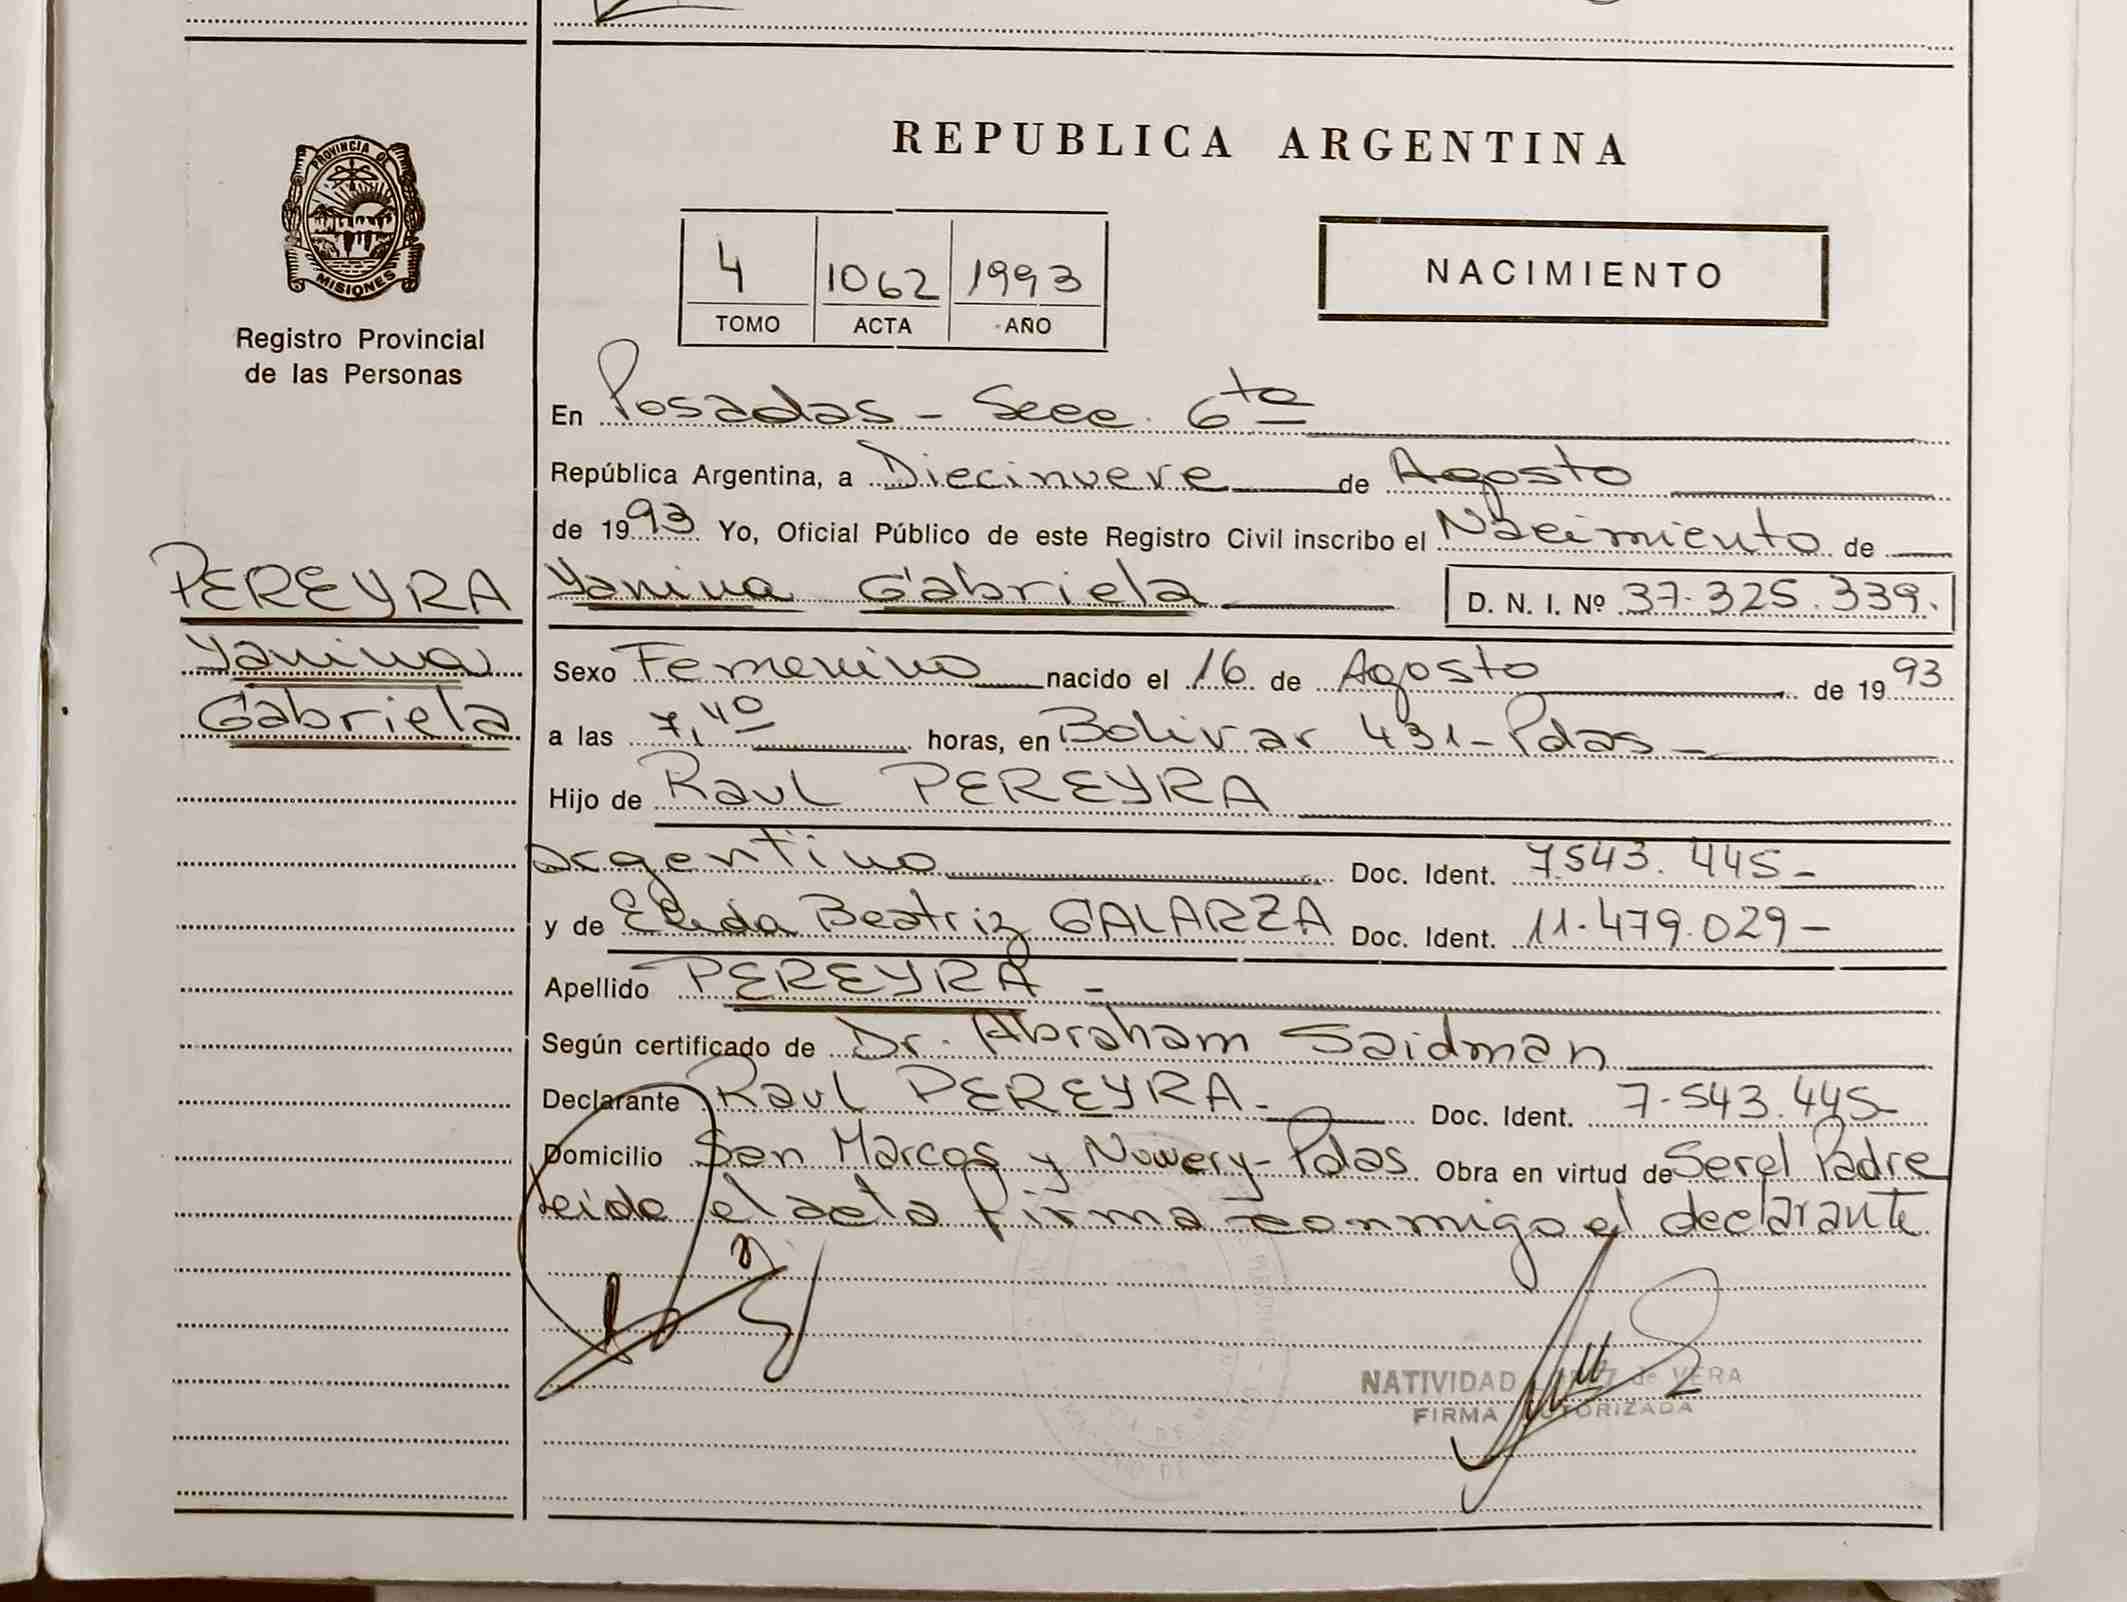 PROVINCIA DE
MISIONES
Registro Provincial
de las Personas
PEREYRA
Yanina
Gabriela
REPUBLICA ARGENTINA
4 1062 1993
TOMO ACTA AÑO
NACIMIENTO
En Posadas - Secc. 6ta
República Argentina, a Diecinueve de Agosto
de 1993 Yo, Oficial Público de este Registro Civil inscribo el Nacimiento de
Yanina Gabriela D. N. I. Nº 37.325.339.
Sexo Femenino nacido el 16 de Agosto de 1993
a las 7,40 horas, en Bolivar 431 - Pdas -
Hijo de Raul PEREYRA
argentino Doc. Ident. 7.543.445 -
y de Elida Beatriz GALARZA Doc. Ident. 11.479.029 -
Apellido PEREYRA -
Según certificado de Dr. Abraham Saidman
Declarante Raul PEREYRA - Doc. Ident. 7.543.445 -
Domicilio San Marcos y Nowery - Pdas Obra en virtud de Ser el Padre
leido el acta firma conmigo el declarante
NATIVIDAD de VERA
FIRMA AUTORIZADA